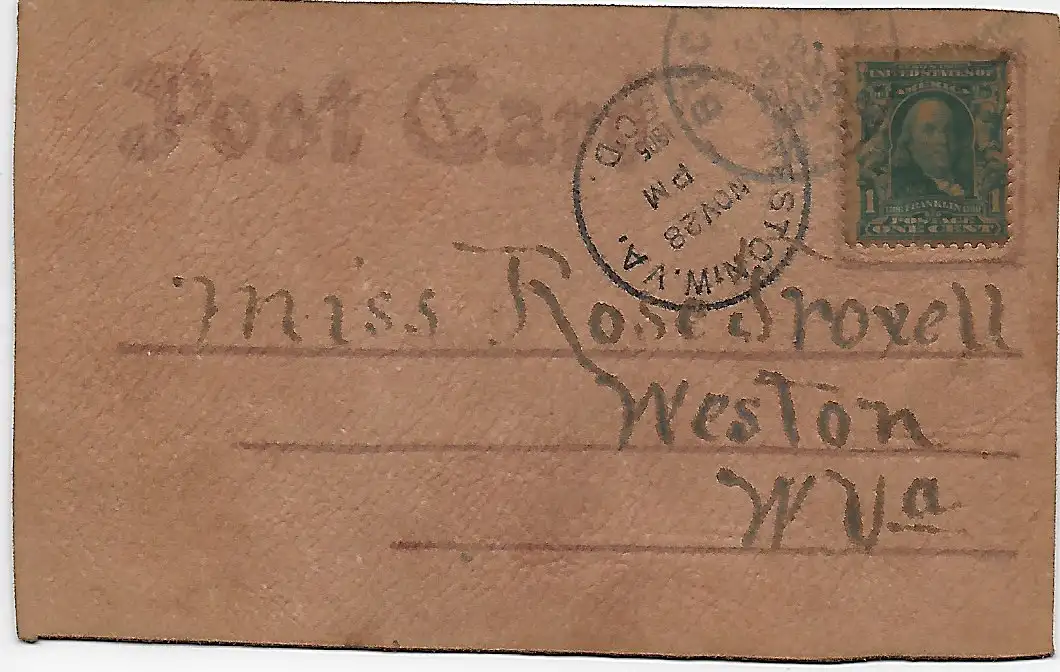 Post Car
WESTON, W. VA.
NOV 28
PM
1905
REC'D.
BUC
UNITED STATES OF
AMERICA
FRANKLIN
1 POSTAGE 1
ONE CENT
Miss Rose Troxell
Weston
W Va